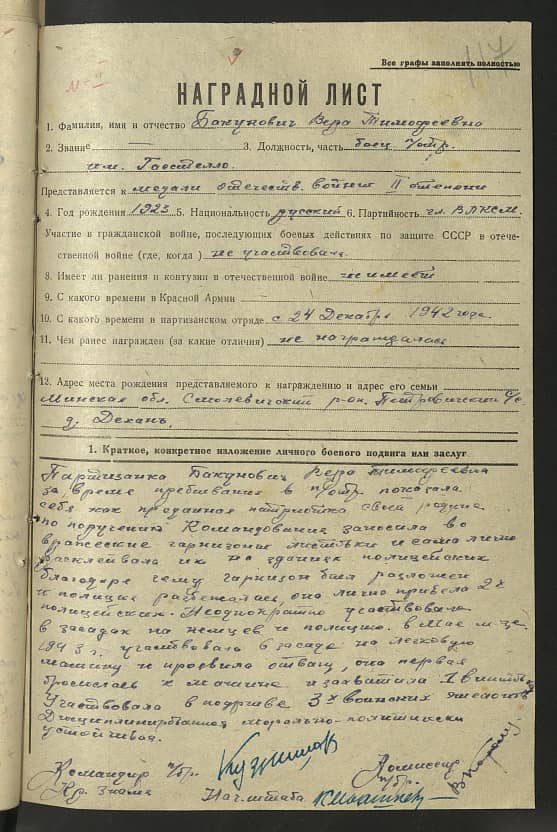 117
Все графы заполнять полностью
НАГРАДНОЙ ЛИСТ
1. Фамилия, имя и отчество Бакунович Вера Тимофеевна
2. Звание — 3. Должность, часть боец п/отр.
им. Гастелло.
Представляется к медали отечеств. войны II степени
4. Год рождения 1923 5. Национальность русский 6. Партийность чл. ВЛКСМ.
Участие в гражданской войне, последующих боевых действиях по защите СССР и отече-
ственной войне (где, когда) не участвовала
8. Имеет ли ранения и контузии в отечественной войне не имеет
9. С какого времени в Красной Армии
10. С какого времени в партизанском отряде с 24 Декабря 1942 года.
11. Чем ранее награжден (за какие отличия) не награждалась
12. Адрес места рождения представляемого к награждению и адрес его семьи
Минская обл. Смолевичский р-он. Петровичский с/с
д. Дехань.
1. Краткое, конкретное изложение личного боевого подвига или заслуг
Партизанка Бакунович Вера Тимофеевна
за время пребывания в п/отр. показала
себя как преданная патриотка своей родине
по поручению Командования заносила во
вражеские гарнизоны листовки и сама лично
расклеивала их на зданиях полицейских
благодаря чему гарнизон был разложен
и полиция разбежалась, она лично привела 2х
полицейских. Неоднократно участвовала
в засадах на немцев и полицию. в Мае м-це
1943 г. участвовала в засаде на легковую
машину и проявила отвагу, она первая
бросилась к машине и захватила 1 винтовку
Участвовала в подрыве 3х воинских эшелонов
Дисциплинированная морально-политически
устойчивая.
Командир п/бр. Комиссар
Кр. Знамя Нач. штаба п/бр.